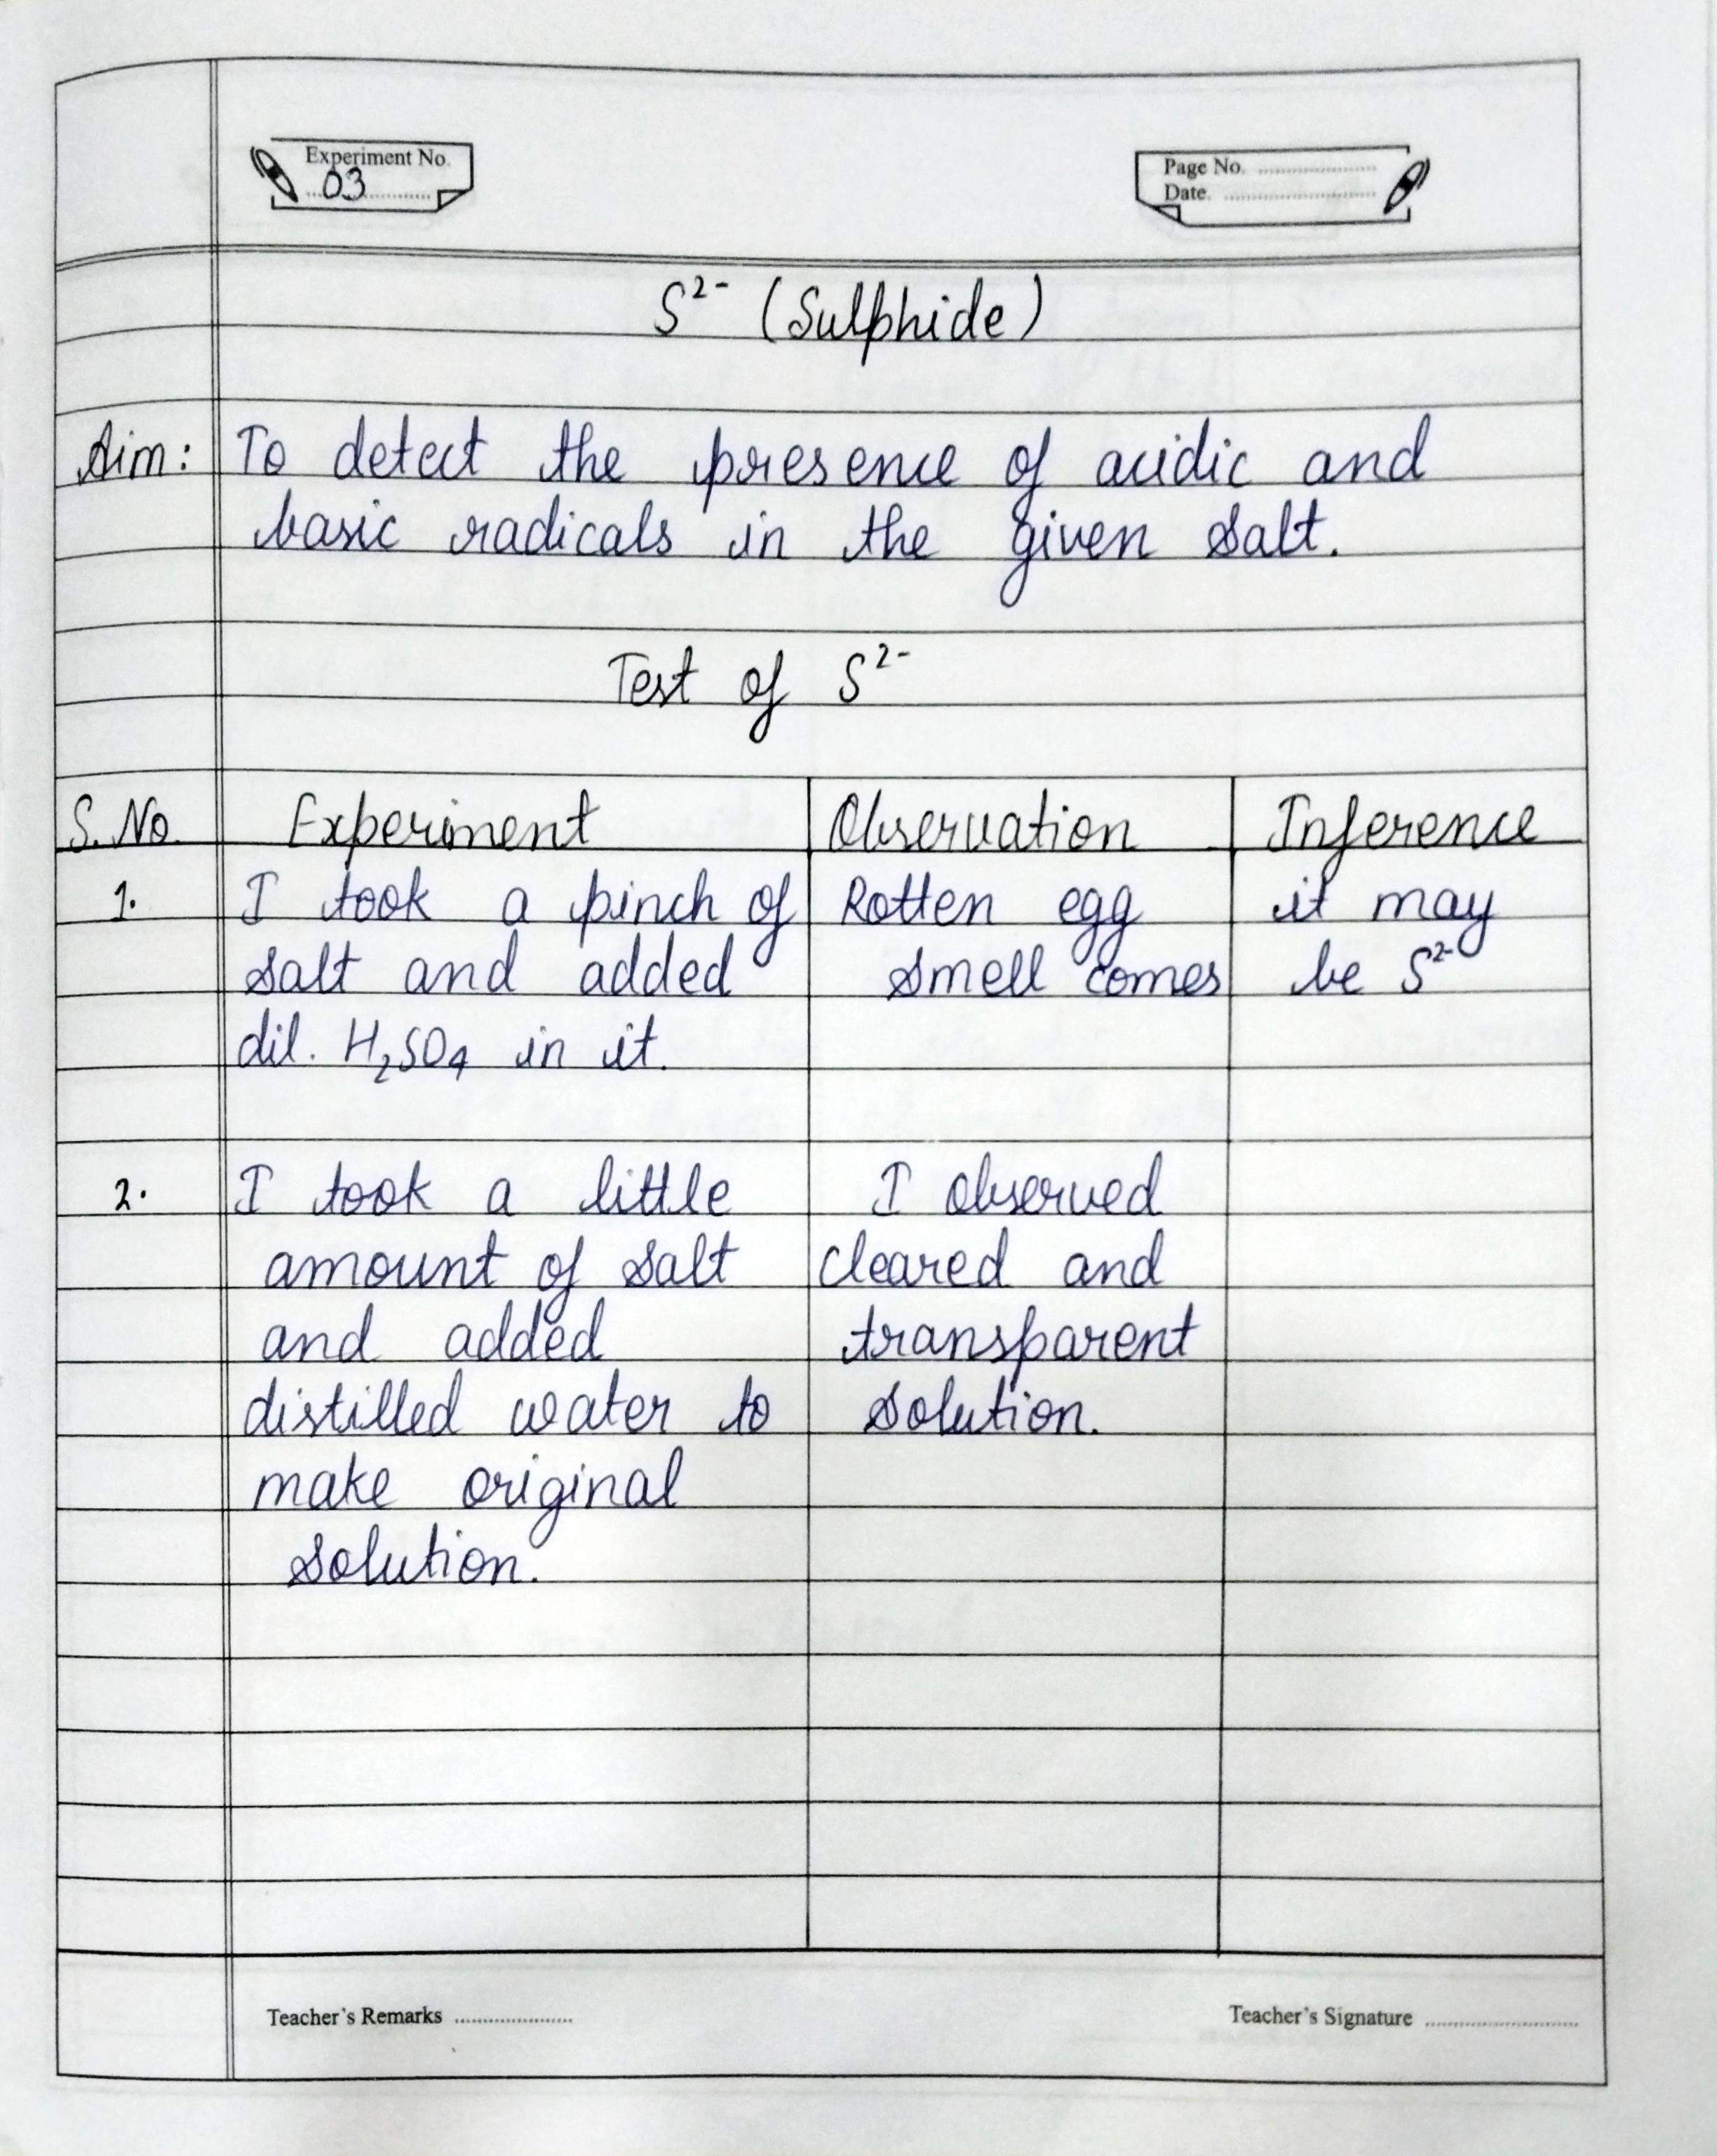 Experiment No.
03
Page No. ....................
Date. ....................
S²⁻ (Sulphide)
Aim: To detect the presence of acidic and
basic radicals in the given salt.
Test of S²⁻
S. No. Experiment Observation Inference
1. I took a pinch of Rotten egg it may
salt and added smell comes be S²⁻
dil. H₂SO₄ in it.
2. I took a little I observed
amount of salt cleared and
and added transparent
distilled water to solution.
make original
solution.
Teacher's Remarks ....................
Teacher's Signature ....................